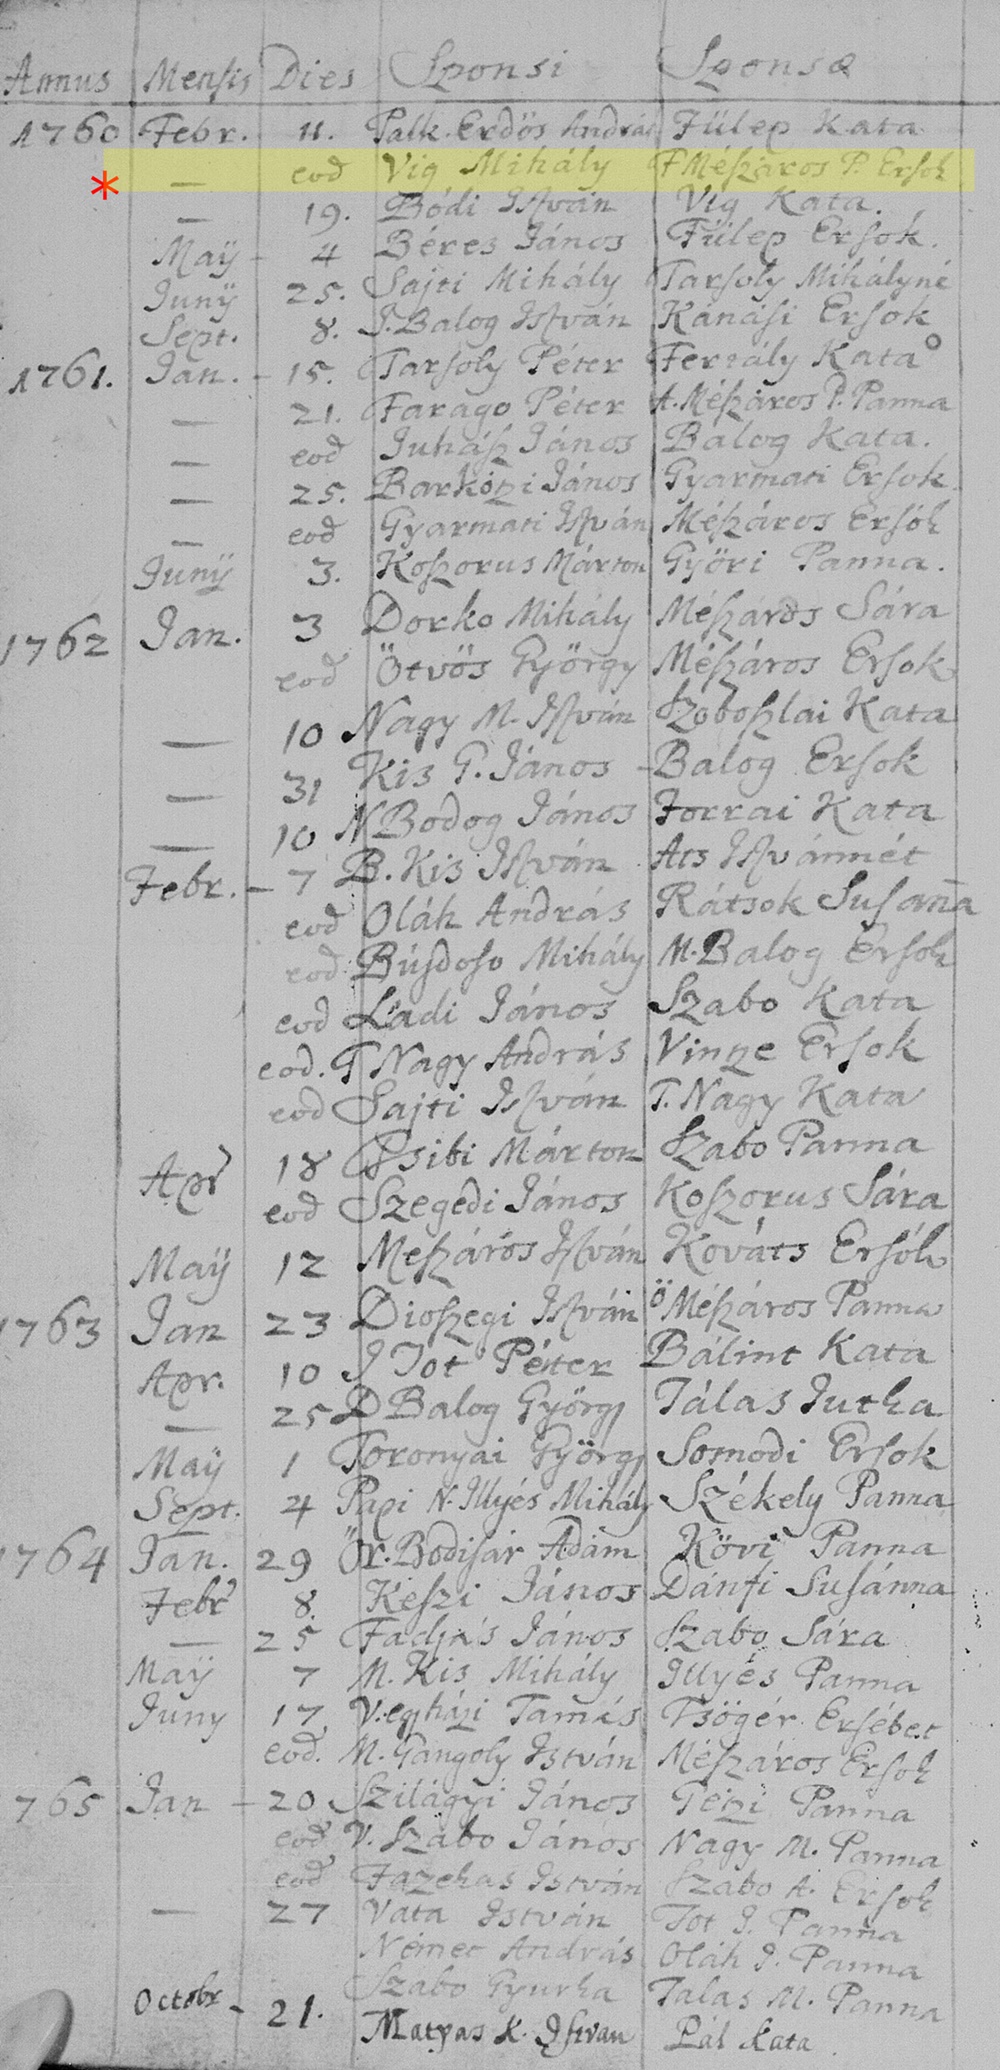 Annus Mensis Dies Sponsi Sponsæ
1760 Febr. 11. Palk. Erdös András Fülep Kata
* — eod Vig Mihály F Mészáros P. Ersok
— 19. Bódi István Vig Kata.
Maÿ - 4 Béres János Fülep Ersok.
Junÿ 25. Sajti Mihály Tarsoly Mihályné
Sept. 8. J. Balog István Kanási Ersok
1761. Jan. - 15. Tarsoly Péter Kata
— 21. Farago Péter A. Mészáros P. Panna
— eod Juhász János Balog Kata.
— 25. Barkóczi János Gyarmati Ersok
— eod Gyarmati István Mészáros Ersók
Junÿ 3. Koszorus Márton Györi Panna.
1762 Jan. 3 Dorko Mihály Mészáros Sára
eod Ötvös György Mészáros Ersok
— 10 Nagy M. István Szoboszlai Kata
— 31 Kis G. János - Balog Ersok
— 10 N Bodog János Forrai Kata
Febr. - 7 B. Kis István Ats Istvánnét
eod Oláh András Rátsok Susana
eod Búsdoso Mihály M. Balog Ersok
eod Ladi János Szabo Kata
eod. T Nagy András Vincze Ersok
eod Sajti István T. Nagy Kata
Apr 18 Márton Szabo Panna
eod Szegedi János Koszorus Sára
Maÿ 12 Meszáros István Kováts Ersók
1763 Jan 23 Dioszegi István Ö Mészáros Panna
Apr. 10 J Tot Péter Bálint Kata
— 25 D Balog György Tálas Jutka
Maÿ 1 Toronyai György Somodi Ersok
Sept. 4 Papi N. Illyés Mihály Székely Panna
1764 Jan. 29 Ör. Bodisár Adám Kövi Panna
Febr 8. Keszi János Dánfi Susánna
— 25 Fadjás János Szabo Sára
Maÿ 7 M. Kis Mihály Illyés Panna
Juny 17 V. egyházi Tamás Tsögér Ersébet
eod. M. Gangoly István Mészáros Ersok
765 Jan - 20 Szilágyi János Géczi Panna
eod V. Szabo János Nagy M. Panna
eod Fazekas István Szabo A. Ersok
— 27 Vata István Tot J. Panna
Német András Oláh J. Panna
Szabo Gyurka Talas M. Panna
Octobr - 21. Matyas K. Istvan Pál Kata